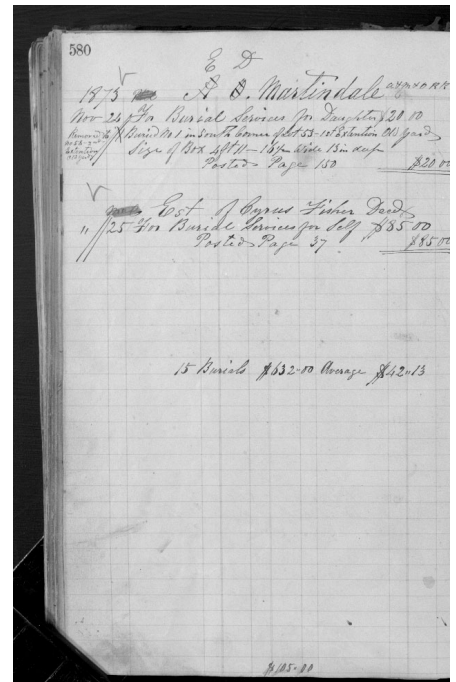 580
E D
1873 A. D. Martindale
Nov 24 For Burial Services for Daughter $20.00
Removed to
No 53 - 2nd
Extention
Old yard
Buried No 1 in South Corner of Lot 53 - 1st Extention Old yard
Size of Box 4 ft 11 - 16 in Wide 15 in deep
Posted Page 150 $20.00
Est of Cyrus Fisher Decd
" 25 For Burial Services for Self $85.00
Posted Page 37 $85.00
15 Burials $632-00 Average $42"13
$105-00